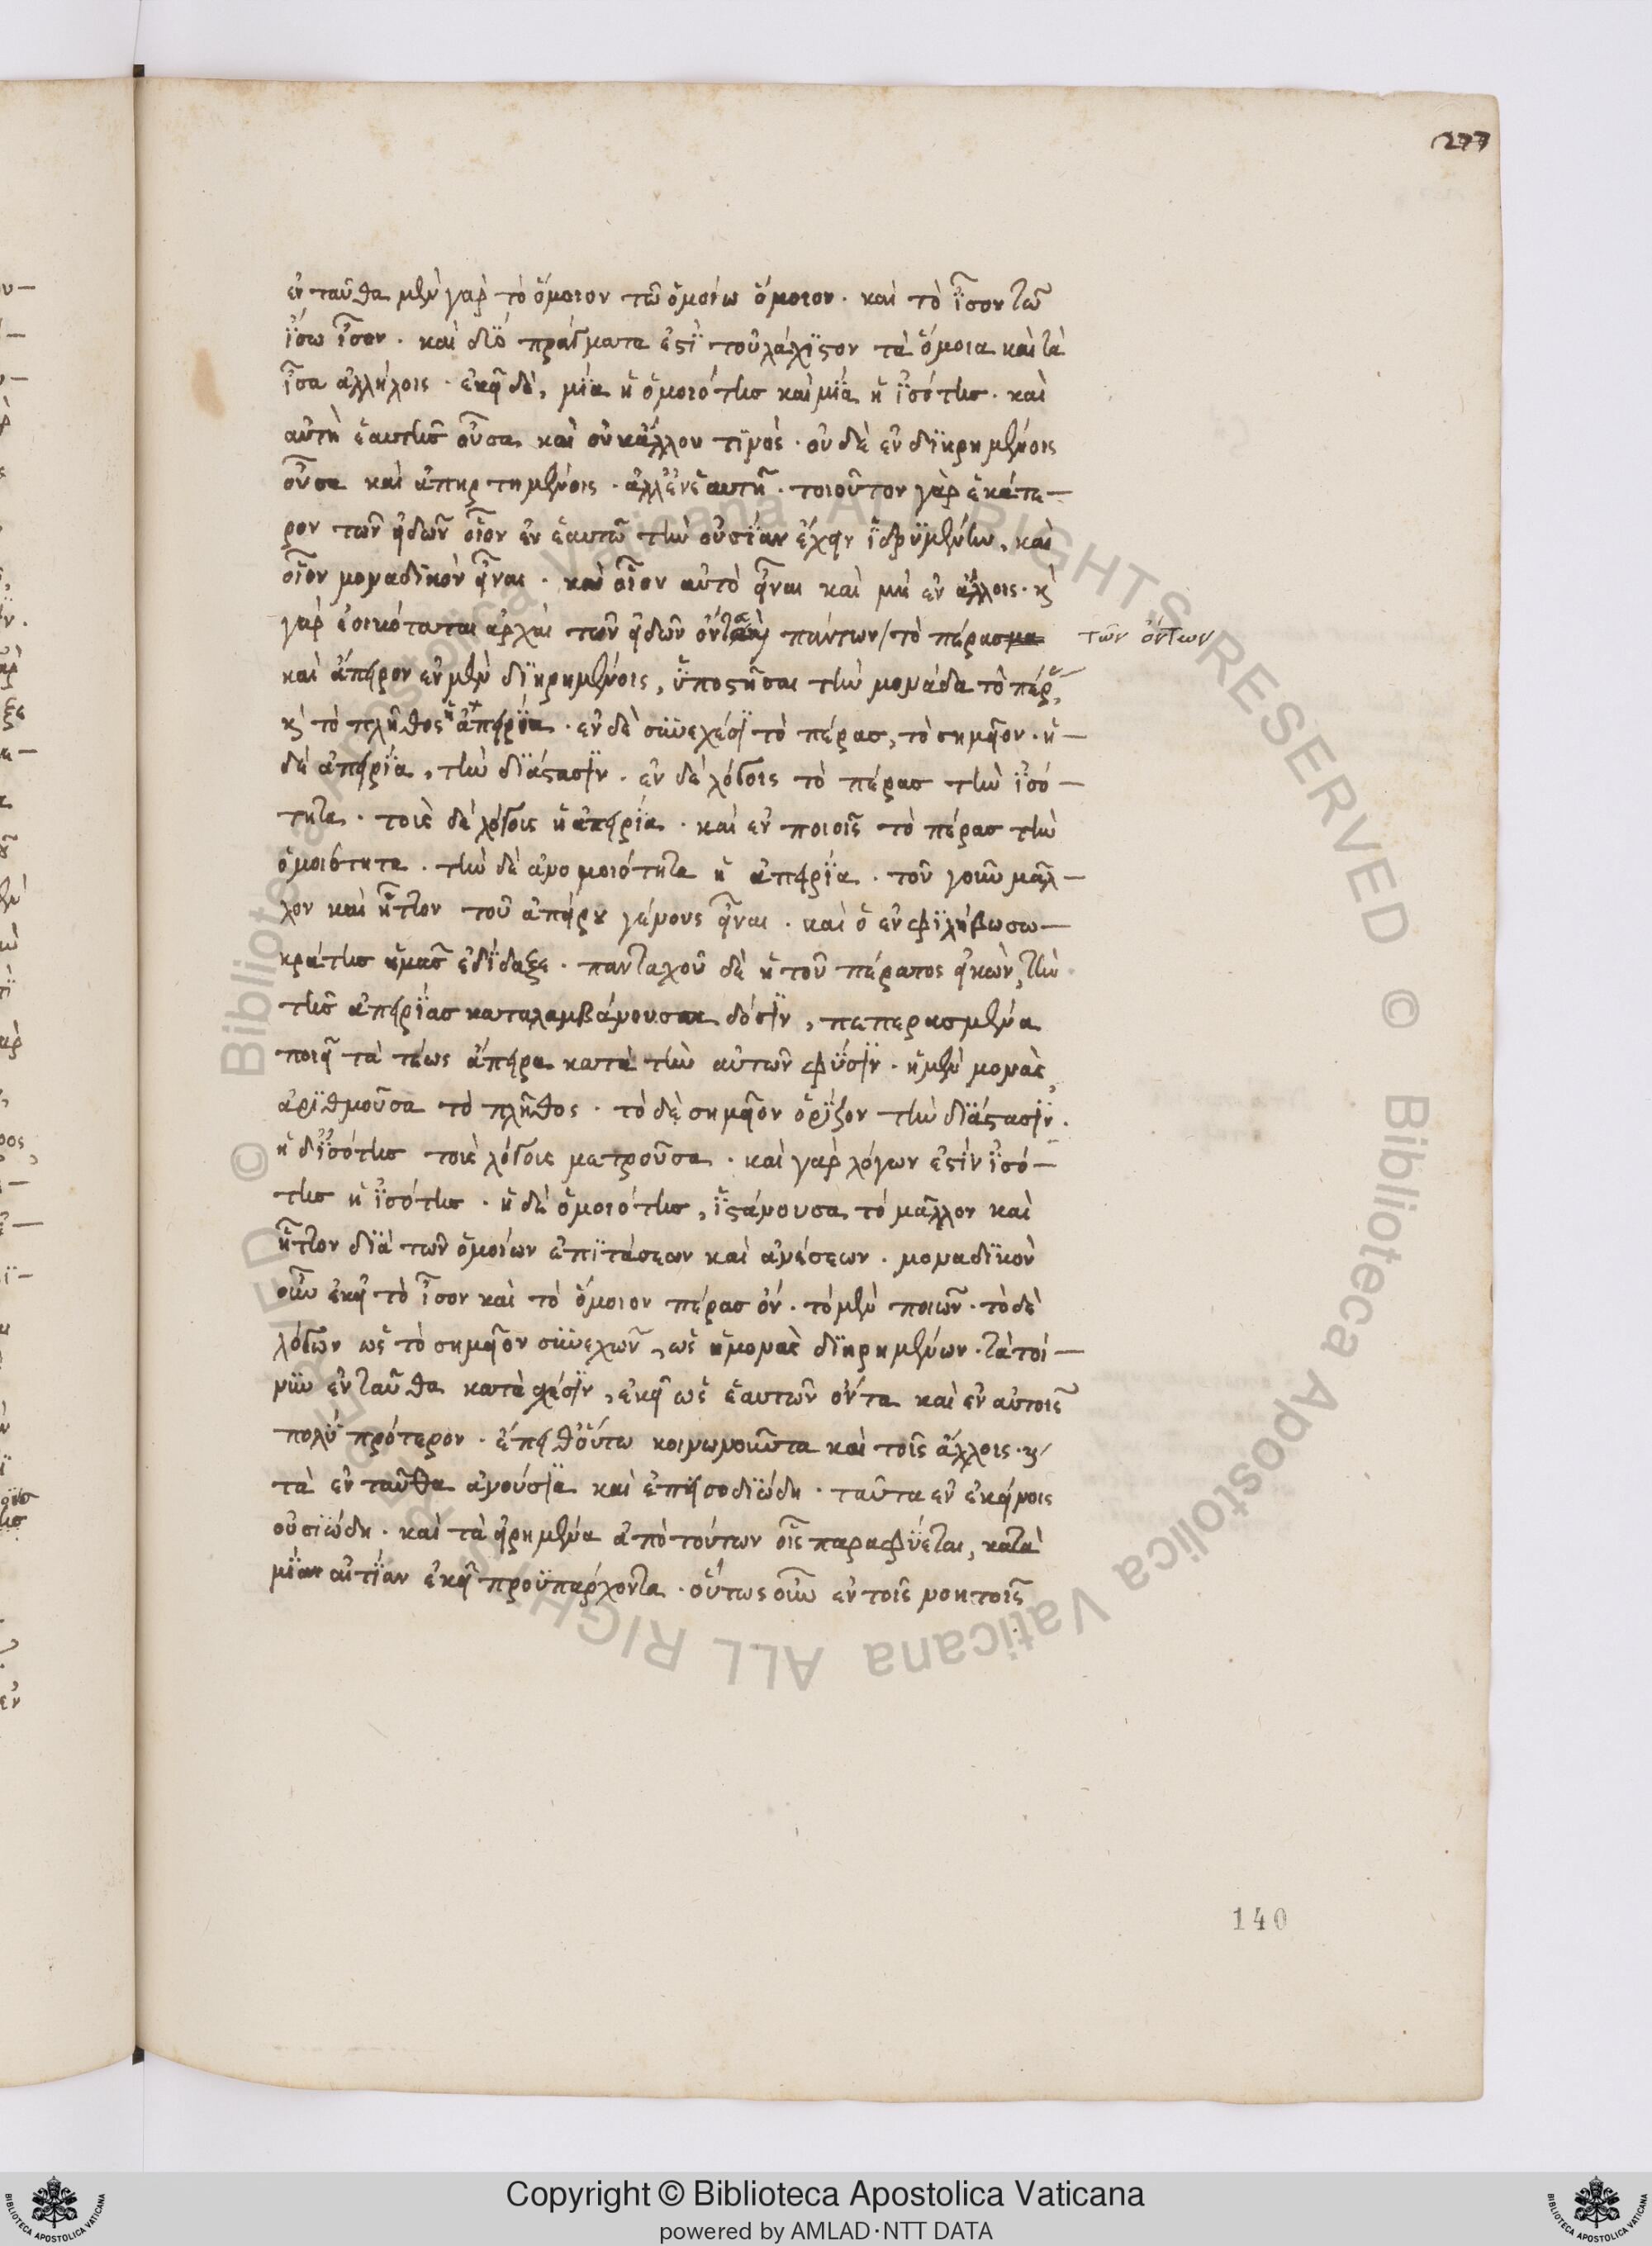 277
ἐνταῦθα μὲν γὰρ τὸ ὅμοιον τῶ ὁμοίω ὅμοιον · καὶ τὸ ἴσον τῶ
ἴσω ἴσον · καὶ δύο πράγματα ἐστὶ τοὐλάχιστον τὰ ὅμοια καὶ τὰ
ἴσα ἀλλήλοις · ἐκεῖ δὲ, μία ἡ ὁμοιότης καὶ μία ἡ ἰσότης · καὶ
αὐτὴ ἑαυτῆς οὖσα καὶ οὐκ ἄλλου τινός · οὐδὲ ἐν διῃρημένοις
οὖσα καὶ ἀπηρτημένοις · ἀλλ' ἐν ἑαυτῇ · τοιοῦτον γὰρ ἑκάτε—
ρον τῶν εἰδῶν οἷον ἐν ἑαυτῶ τὴν οὐσίαν ἔχειν ἱδρυμένην, καὶ
οἷον μοναδικὸν εἶναι · καὶ οἷον αὐτὸ εἶναι καὶ μὴ ἐν ἄλλοις · κ
γὰρ ἐοικόταται ἀρχαὶ τῶν εἰδῶν πάντων / τὸ πέρας τῶν ὄντων
καὶ ἄπειρον ἐν μὲν διῃρημένοις, ὑποστῆσαι τὴν μονάδα τὸ πέρας,
κ τὸ πλῆθος ἡ ἀπειρία · ἐν δὲ συνεχέσι τὸ πέρας, τὸ σημεῖον · ἡ—
δὲ ἀπειρία, τὴν διάστασιν · ἐν δὲ λόγοις τὸ πέρας τὴν ἰσό—
τητα · τοὺς δὲ λόγους ἡ ἀπειρία · καὶ ἐν ποιοῖς τὸ πέρας τὴν
ὁμοιότητα · τὴν δὲ ἀνομοιότητα ἡ ἀπειρία · τὸν γοῦν μᾶλ—
λον καὶ ἧττον τοῦ ἀπείρου γένους εἶναι · καὶ ὁ ἐν φιλήβω σω—
κράτης ἡμᾶς ἐδίδαξε · πανταχοῦ δὲ ἡ τοῦ πέρατος εἰκὼν, τὴν
τῆς ἀπειρίας καταλαμβάνουσα δόσιν, πεπερασμένα
ποιεῖ τὰ τέως ἄπειρα κατὰ τὴν αὐτῶν φύσιν · ἡ μὲν μονὰς,
ἀριθμοῦσα τὸ πλῆθος · τὸ δὲ σημεῖον ὁρίζον τὴν διάστασιν ·
ἡ δ' ἰσότης τοὺς λόγους μετροῦσα · καὶ γὰρ λόγων ἐστὶν ἰσό—
της ἡ ἰσότης · ἡ δὲ ὁμοιότης, ἱστάνουσα τὸ μᾶλλον καὶ
ἧττον διὰ τῶν ὁμοίων ἐπιτάσεων καὶ ἀνέσεων · μοναδικὸν
οὖν ἐκεῖ τὸ ἴσον καὶ τὸ ὅμοιον πέρας ὄν · τὸ μὲν ποιῶν · τὸ δὲ
λόγων ὡς τὸ σημεῖον συνεχῶν, ὡς ἡ μονὰς διῃρημένων · τὰ τοί—
νυν ἐνταῦθα κατὰ σχέσιν, ἐκεῖ ὡς ἑαυτῶν ὄντα καὶ ἐν αὐτοῖς
πολὺ πρότερον · ἔπειθ' οὕτω κοινωνοῦντα καὶ τοῖς ἄλλοις · κ
τὰ ἐνταῦθα ἀνούσια καὶ ἐπεισοδιώδη · ταῦτα ἐν ἐκείνοις
οὐσιώδη · καὶ τὰ εἰρημένα ἀπὸ τούτων οἷς παραφύεται, κατὰ
μίαν αἰτίαν ἐκεῖ προϋπάρχοντα · οὕτως οὖν ἐν τοῖς νοητοῖς
140
Copyright © Biblioteca Apostolica Vaticana
powered by AMLAD·NTT DATA